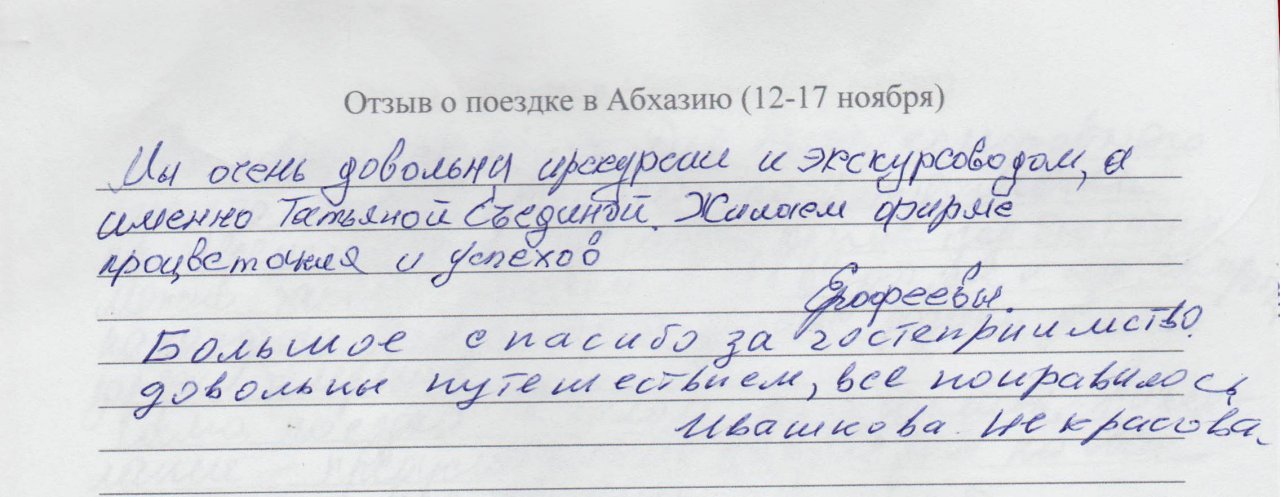 Отзыв о поездке в Абхазию (12-17 ноября)
Мы очень довольны и экскурсоводом, а
именно Татьяной Съединой. Жилаем фирме
процветания и успехов
Ерофеевы.
Большое спасибо за гостеприимство.
довольны путешествием, все понравилось
Ивашкова Некрасова.